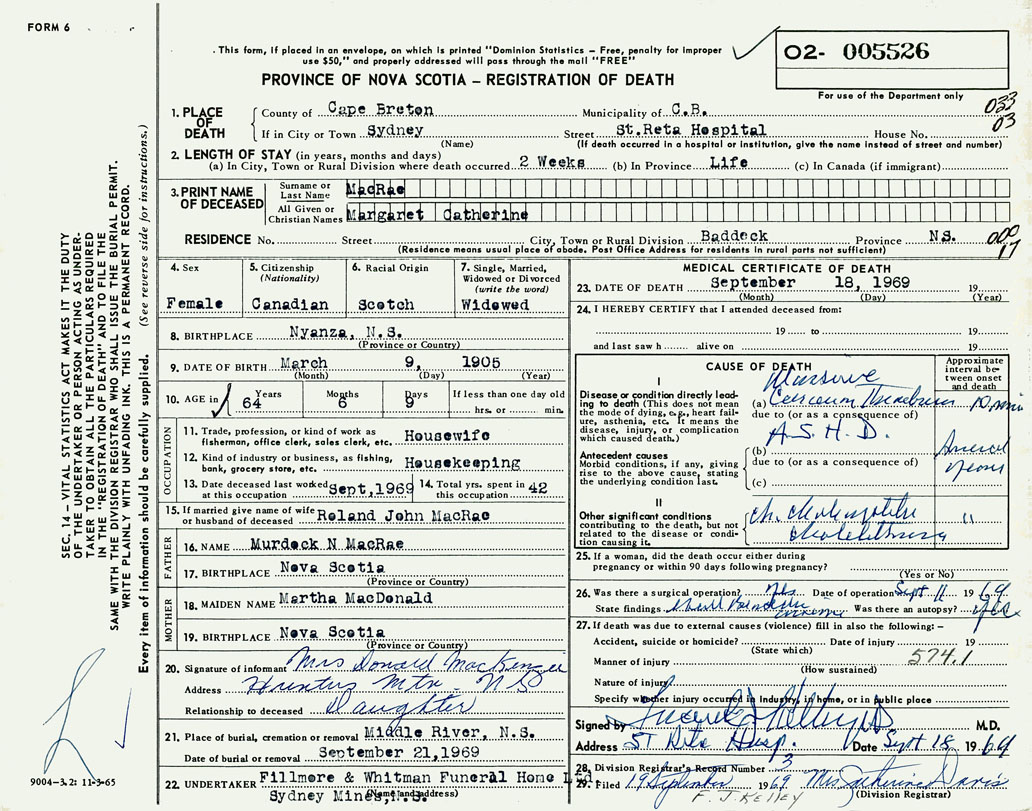 FORM 6
. This form, if placed in an envelope, on which is printed "Dominion Statistics – Free, penalty for improper
use $50," and properly addressed will pass through the mail "FREE"
PROVINCE OF NOVA SCOTIA – REGISTRATION OF DEATH
02- 005526
For use of the Department only
033
03
1. PLACE OF DEATH County of Cape Breton Municipality of C.B.
If in City or Town Sydney Street St.Reta Hospital House No.
(Name) (If death occurred in a hospital or institution, give the name instead of street and number)
2. LENGTH OF STAY (in years, months and days)
(a) In City, Town or Rural Division where death occurred 2 Weeks (b) In Province Life (c) In Canada (if immigrant)
3. PRINT NAME OF DECEASED Surname or Last Name MacRae
All Given or Christian Names Margaret Catherine
RESIDENCE No. Street City, Town or Rural Division Baddeck Province NS.
(Residence means usual place of abode. Post Office Address for residents in rural parts not sufficient)
17
4. Sex Female
5. Citizenship (Nationality) Canadian
6. Racial Origin Scotch
7. Single, Married, Widowed or Divorced (write the word) Widowed
8. BIRTHPLACE Nyanza, N.S.
(Province or Country)
9. DATE OF BIRTH March 9, 1905
(Month) (Day) (Year)
10. AGE in Years 64 Months 6 Days 9 If less than one day old hrs. or min.
OCCUPATION
11. Trade, profession, or kind of work as fisherman, office clerk, sales clerk, etc. Housewife
12. Kind of industry or business, as fishing, bank, grocery store, etc. Housekeeping
13. Date deceased last worked at this occupation Sept,1969 14. Total yrs. spent in this occupation 42
15. If married give name of wife or husband of deceased Roland John MacRae
FATHER
16. NAME Murdock N MacRae
17. BIRTHPLACE Nova Scotia
(Province or Country)
MOTHER
18. MAIDEN NAME Martha MacDonald
19. BIRTHPLACE Nova Scotia
(Province or Country)
20. Signature of informant Mrs Donald MacKenzie
Address Hunters Mtn. NS
Relationship to deceased Daughter
21. Place of burial, cremation or removal Middle River, N.S.
Date of burial or removal September 21,1969
22. UNDERTAKER Fillmore & Whitman Funeral Home Ltd.
(Name and address)
Sydney Mines,N.S.
MEDICAL CERTIFICATE OF DEATH
23. DATE OF DEATH September 18, 1969 19
(Month) (Day) (Year)
24. I HEREBY CERTIFY that I attended deceased from:
19 to 19
and last saw h alive on 19
CAUSE OF DEATH
Approximate interval between onset and death
I
Disease or condition directly leading to death (This does not mean the mode of dying, e.g., heart failure, asthenia, etc. It means the disease, injury, or complication which caused death.)
Massive
(a) 10 min
due to (or as a consequence of)
A.S.H.D.
Antecedent causes
Morbid conditions, if any, giving rise to the above cause, stating the underlying condition last.
(b)
due to (or as a consequence of)
(c)
years
II
Other significant conditions contributing to the death, but not related to the disease or condition causing it.
ch. cholecystitis
cholelithiasis
"
25. If a woman, did the death occur either during pregnancy or within 90 days following pregnancy?
(Yes or No)
26. Was there a surgical operation? Yes Date of operation Sept 11 19 69
State findings Was there an autopsy? Yes
27. If death was due to external causes (violence) fill in also the following: –
Accident, suicide or homicide? Date of injury 19
(State which)
Manner of injury 574.1
(How sustained)
Nature of injury
Specify whether injury occurred in Industry, in home, or in public place
Signed by M.D.
Address St Rita Hosp. Date Sept 18 19 69
28. Division Registrar's Record Number 3
29. Filed 19 September 1969 Mrs Davis
(Division Registrar)
F. J. KELLEY
SEC. 14 – VITAL STATISTICS ACT MAKES IT THE DUTY
OF THE UNDERTAKER OR PERSON ACTING AS UNDER-
TAKER TO OBTAIN ALL THE PARTICULARS REQUIRED
IN THE "REGISTRATION OF DEATH" AND TO FILE THE
SAME WITH THE DIVISION REGISTRAR WHO SHALL ISSUE THE BURIAL PERMIT.
WRITE PLAINLY WITH UNFADING INK. THIS IS A PERMANENT RECORD.
Every item of information should be carefully supplied. (See reverse side for instructions.)
9004–3.2: 11-3-65